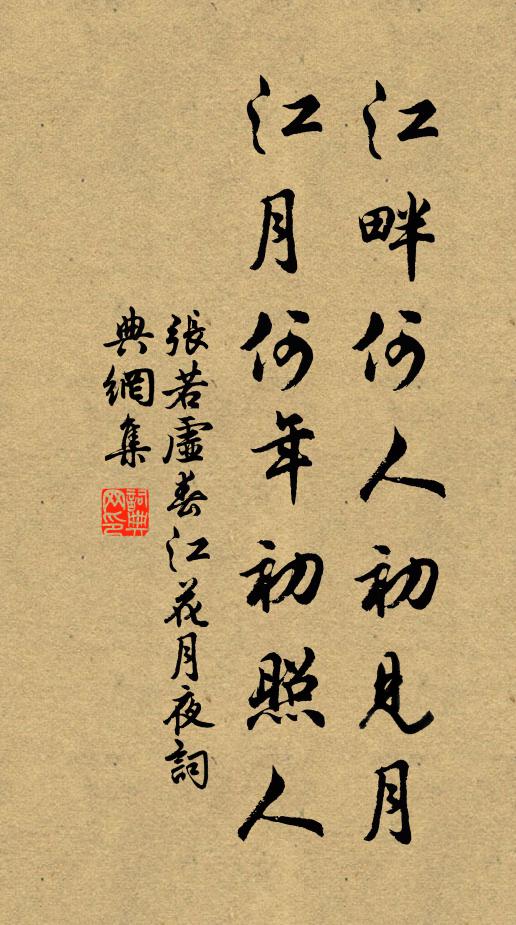 江畔何人初見月
江月何年初照人
張若虛春江花月夜詞
典網集
詞典网印